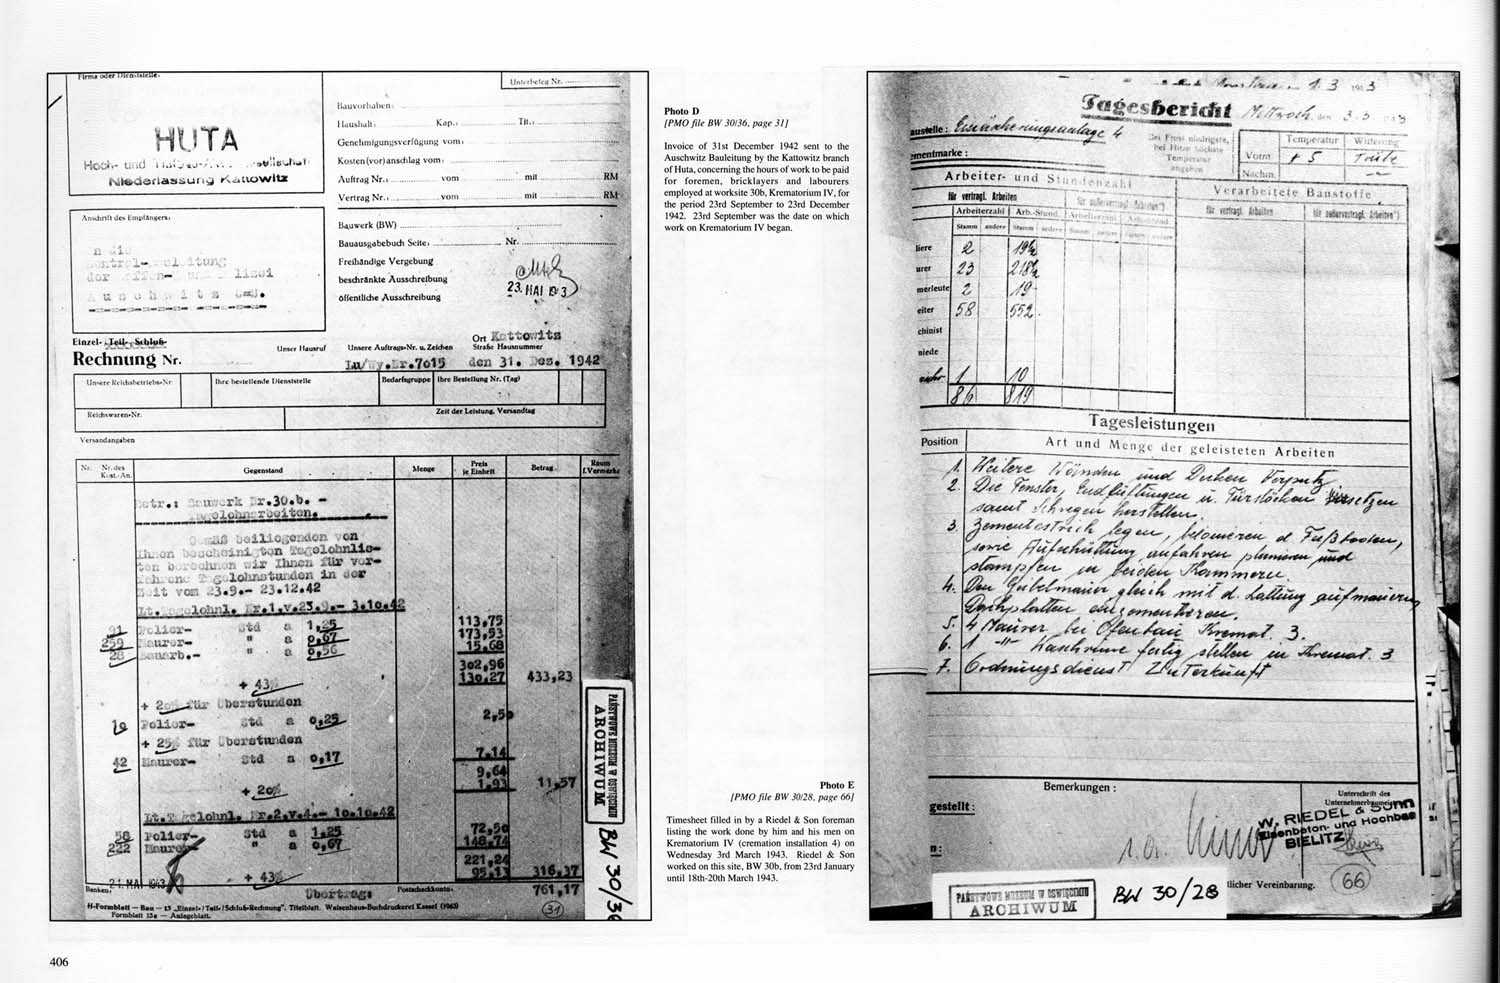 Firma oder Dienststelle:
HUTA
Hoch- und
Niederlassung Kattowitz
Anschrift des Empfängers:
n die
der
A u s c h w i t z
Unterbeleg Nr.
Bauvorhaben:
Haushalt: Kap.: Tit.:
Genehmigungsverfügung vom:
Kosten(vor)anschlag vom:
Auftrag Nr.: vom mit RM
Vertrag Nr.: vom mit RM
Bauwerk (BW)
Bauausgabebuch Seite: Nr.
Freihändige Vergebung
beschränkte Ausschreibung
öffentliche Ausschreibung
23. MAI
Einzel- Teil- Schluß-
Rechnung Nr.
Unser Hausruf
Unsere Auftrags-Nr. u. Zeichen
Ort Kattowitz
Straße Hausnummer
Lu/Wy.Nr.7015 den 31. Dez. 1942
Unsere Reichsbetriebs-Nr.
Ihre bestellende Dienststelle
Bedarfsgruppe
Ihre Bestellung Nr. (Tag)
Reichswaren-Nr.
Zeit der Leistung, Versandtag
Versandangaben
Nr. Nr. des Kost.-An. Gegenstand Menge Preis je Einheit Betrag Raum f. Vermerke
Betr.: Bauwerk Nr.30.b. -
Tagelohnarbeiten.
Gemäß beiliegenden von
Ihnen bescheinigten Tagelohnlis-
ten berechnen wir Ihnen für ver-
fahrene Tagelohnstunden in der
Zeit vom 23.9.- 23.12.42
Lt.Tagelohnl. Nr.1.v.23.9.- 3.10.42
91 Polier- Std a 1,25 113,75
259 Maurer- " a 0,67 173,53
28 Bauarb.- " a 0,56 15,68
302,96
+ 43% 130,27 433,23
+ 20% für Überstunden
10 Polier- Std a 0,25 2,50
+ 25% für Überstunden
42 Maurer- Std a 0,17 7,14
9,64
+ 20% 1,93 11,57
Lt.Tagelohnl. Nr.2.v.4.- 10.10.42
58 Polier- Std a 1,25 72,50
222 Maurer- " a 0,67 148,74
221,24
+ 43% 95,13 316,37
Banken: 21. MAI 1943 Postscheckkonto:
Übertrag: 761,17
Formblatt — Bau — 13 „Einzel-/Teil-/Schluß-Rechnung“. Titelblatt. Waisenhaus-Buchdruckerei Kassel (1943)
Formblatt 13a — Anlageblatt.
31
PAŃSTWOWE MUZEUM W OŚWIĘCIMIU
ARCHIWUM
BW 30/36
406
Photo D
[PMO file BW 30/36, page 31]
Invoice of 31st December 1942 sent to the
Auschwitz Bauleitung by the Kattowitz branch
of Huta, concerning the hours of work to be paid
for foremen, bricklayers and labourers
employed at worksite 30b, Krematorium IV, for
the period 23rd September to 23rd December
1942. 23rd September was the date on which
work on Krematorium IV began.
Photo E
[PMO file BW 30/28, page 66]
Timesheet filled in by a Riedel & Son foreman
listing the work done by him and his men on
Krematorium IV (cremation installation 4) on
Wednesday 3rd March 1943. Riedel & Son
worked on this site, BW 30b, from 23rd January
until 18th-20th March 1943.
Tagesbericht Mittwoch, den 3.3.
austelle: Einäscherungsanlage 4
ementmarke:
Bei Frost niedrigste,
bei Hitze höchste
Temperatur
angeben
Temperatur Witterung
Vorm. + 5 Trübe
Nachm.
Arbeiter- und Stundenzahl
Verarbeitete Baustoffe
für vertragl. Arbeiten für außervertragl. Arbeiten*)
für vertragl. Arbeiten für außervertragl. Arbeiten*)
Arbeiterzahl Arb.-Stund. Arbeiterzahl
Stamm andere Stamm andere Stamm andere Stamm andere
liere 2 19½
urer 23 218½
merleute 2 19
eiter 58 552
chinist
miede
1 10
86 819
Tagesleistungen
Position Art und Menge der geleisteten Arbeiten
1. Weitere Wänden und Decken Verputz
2. Die Fenster, Entlüftungen u. Türstöcken versetzen
samt Schregen herstellen.
3. Zementestrich legen, betonieren d. Fußboden,
sowie Aufschüttung anfahren planieren und
stampfen in beiden Kammern.
4. Den Giebelmauer gleich mit d. Lattung aufmauern
Dachplatten einzementieren.
5. 4 Maurer bei Ofenbau Kremat. 3.
6. 1 -"- fertig stellen in Kremat. 3
7. Ordnungsdienst Unterkunft
Bemerkungen:
gestellt:
Unterschrift des
W. RIEDEL & SOHN
Eisenbeton- und Hochbau
BIELITZ
n:
tlicher Vereinbarung.
66
PAŃSTWOWE MUZEUM W OŚWIĘCIMIU
ARCHIWUM
BW 30/28